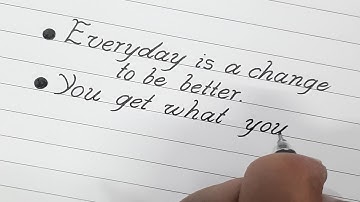 • Everyday is a change
to be better.
• You get what you